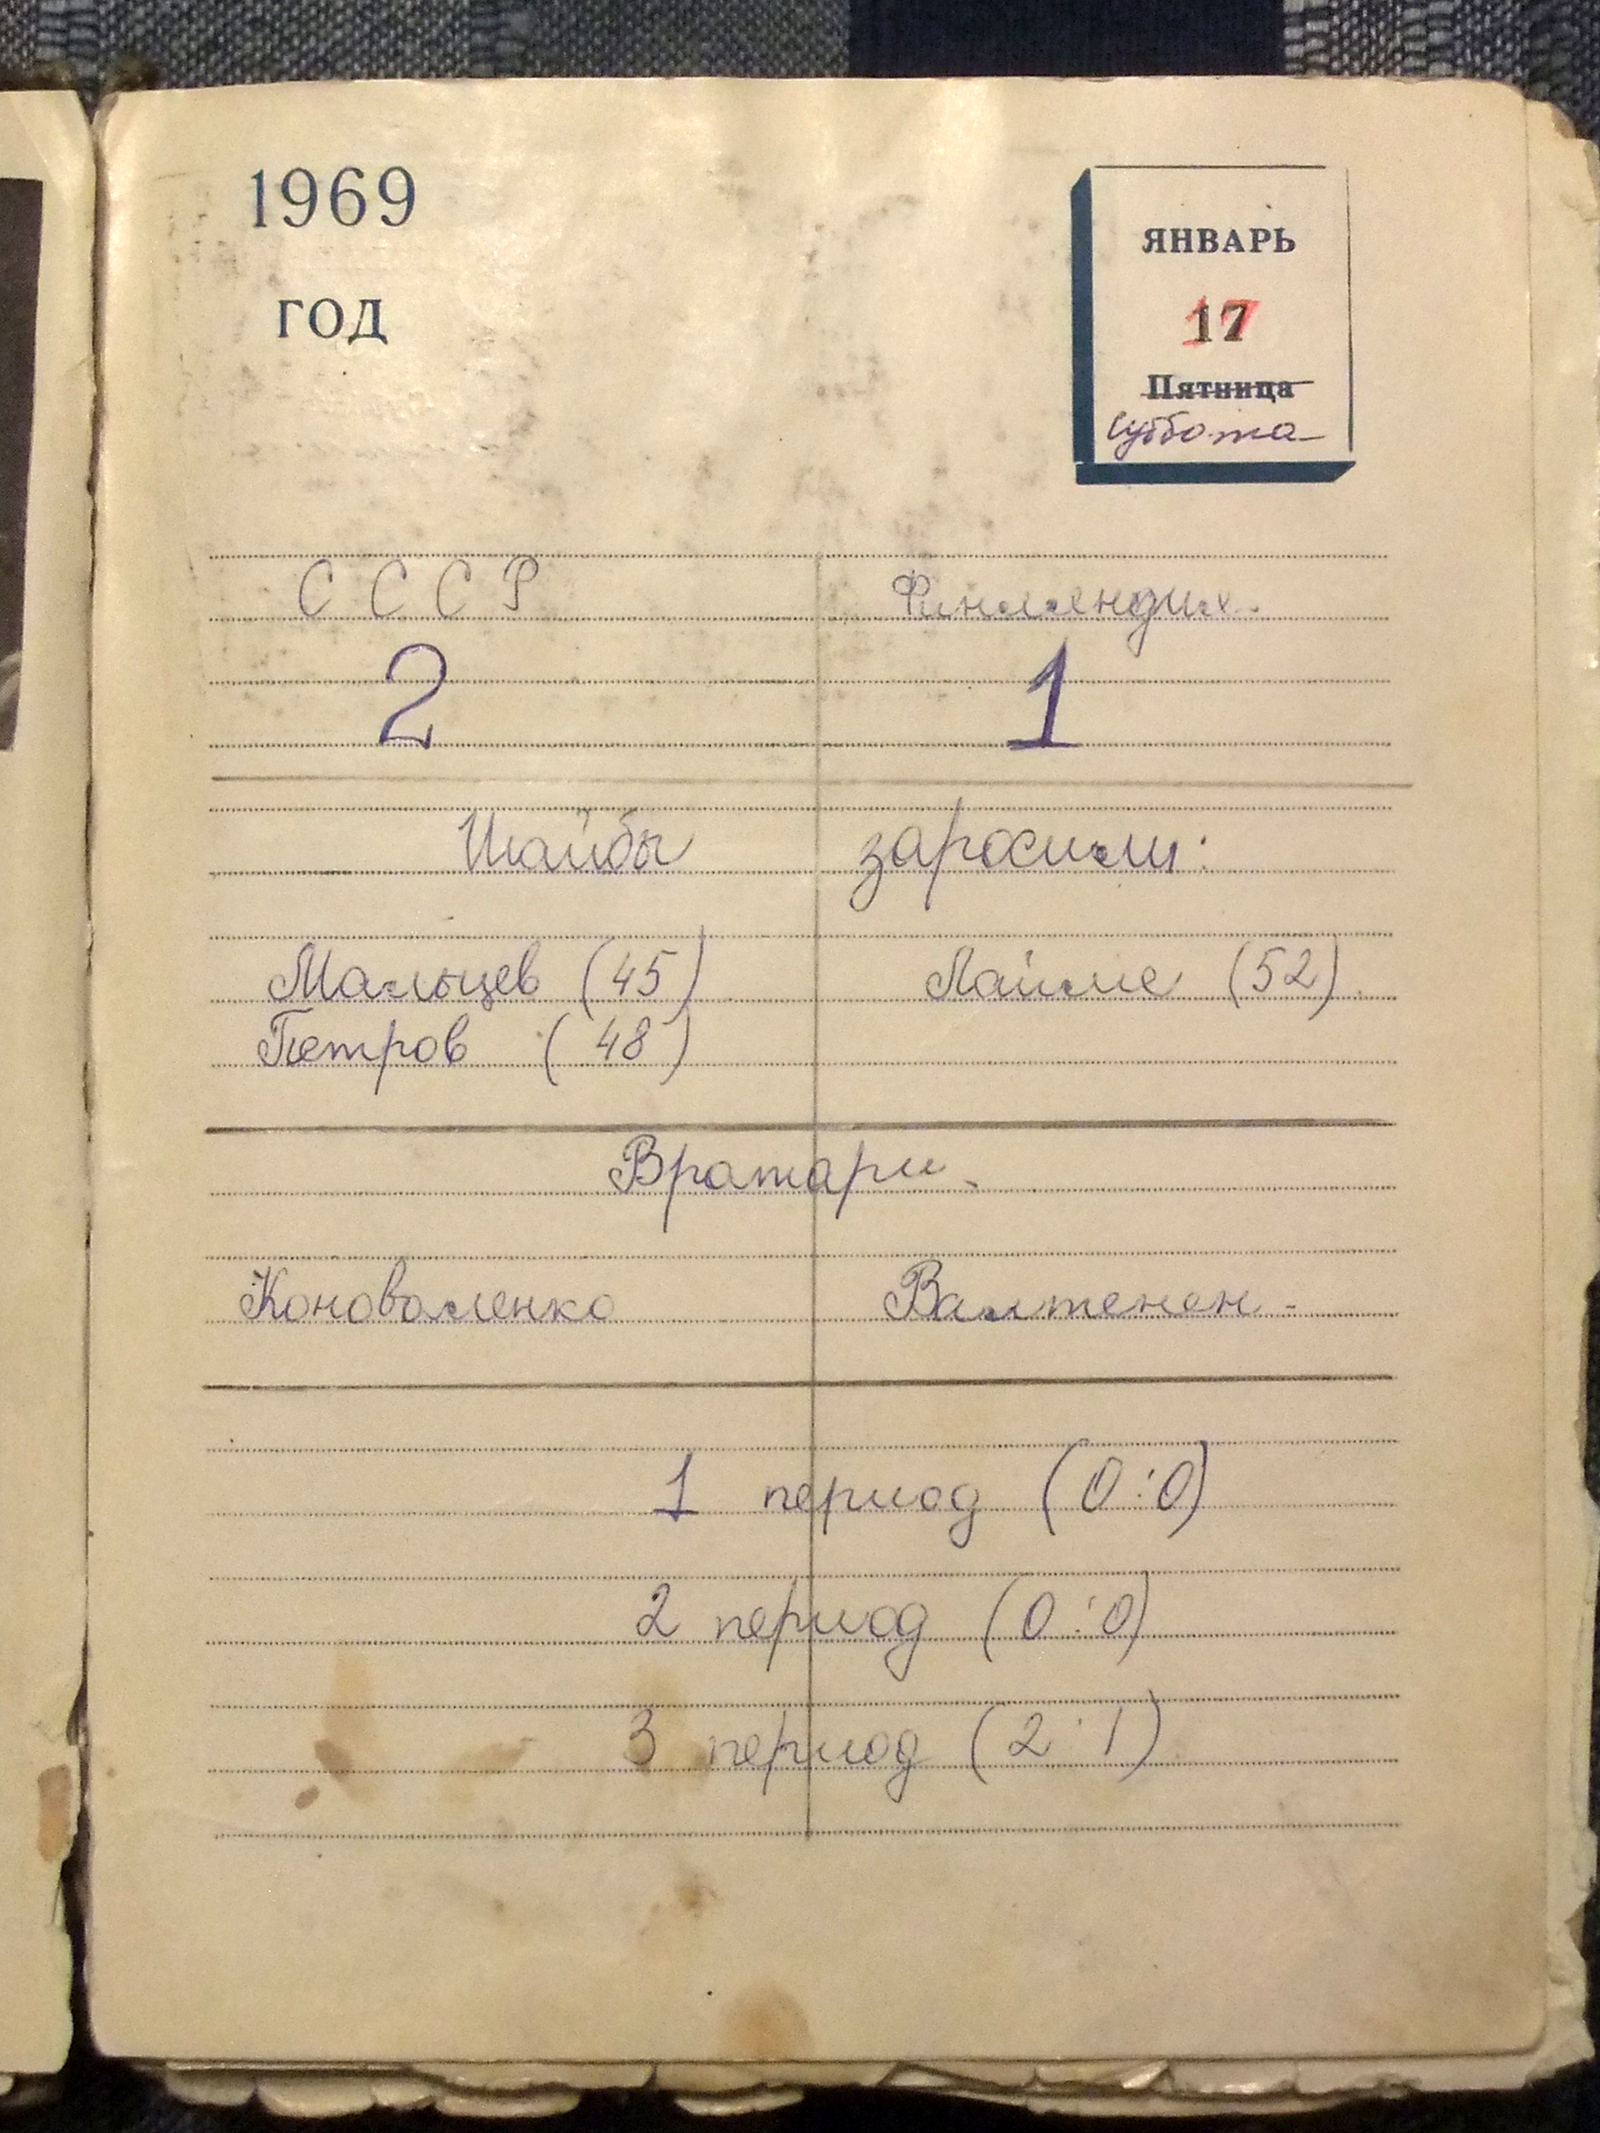 1969
ГОД
ЯНВАРЬ
17
Пятница
суббота
СССР Финляндия
2 1
Шайбы заросили:
Мальцев (45) Лайне (52).
Петров (48)
Вратари
Коноваленко Валтенен
1 период (0:0)
2 период (0:0)
3 период (2:1)